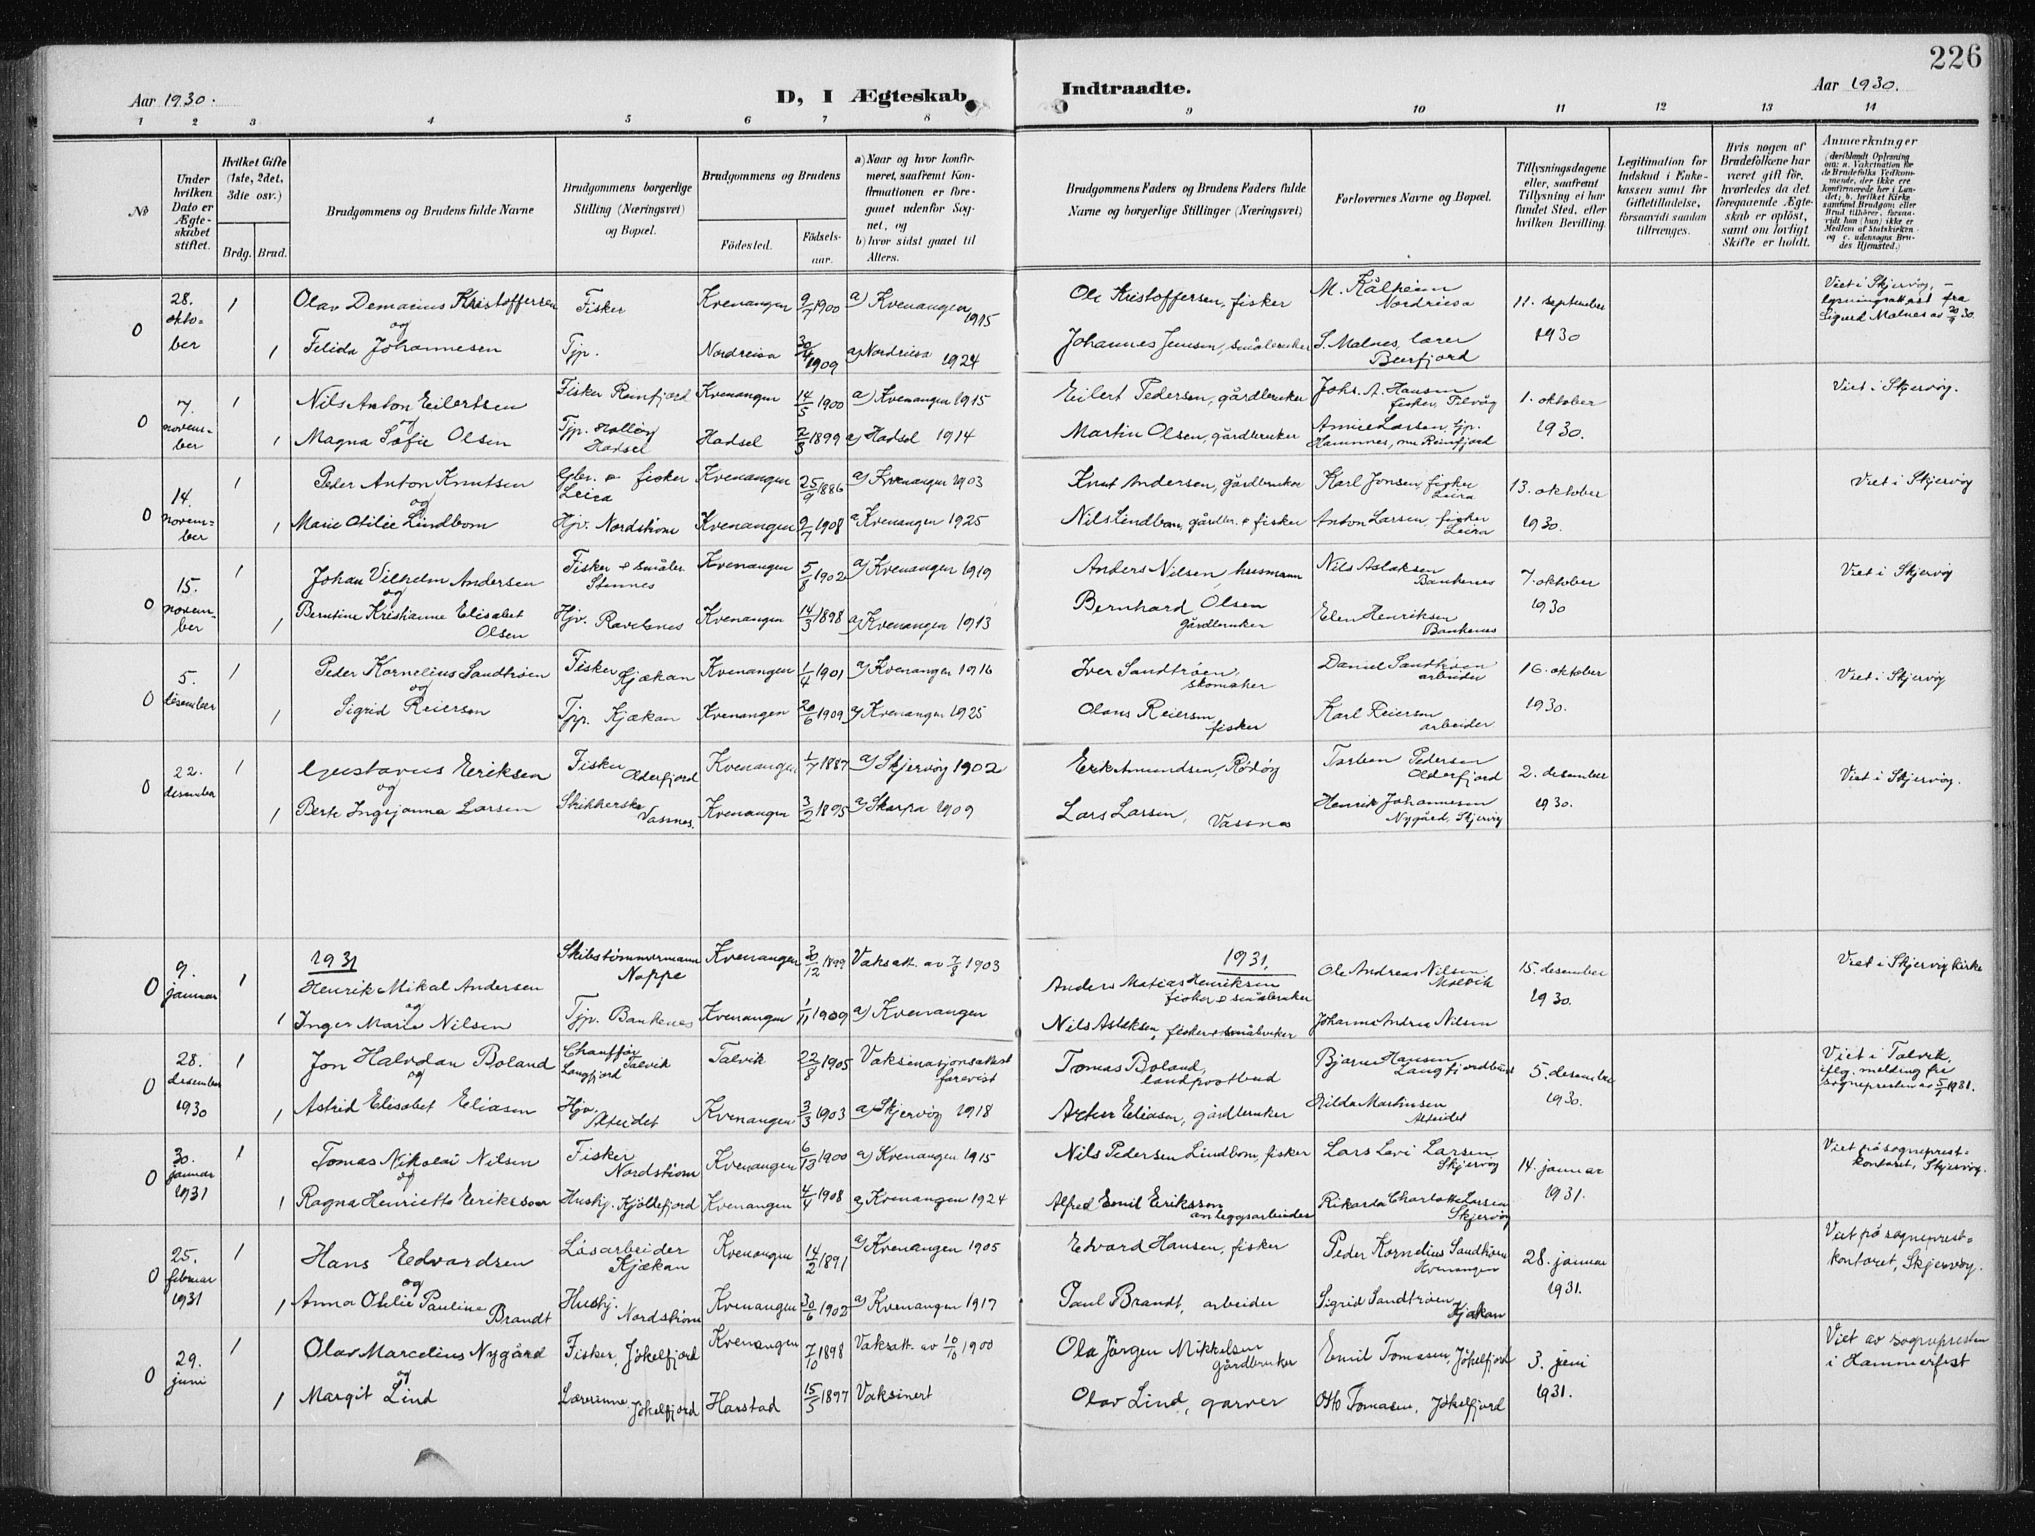 226
Aar 1930.
D, I Ægteskab
Indtraadte.
Aar 1930.
1 2 3 4 5 6 7 8 9 10 11 12 13 14
No
Under hvilken Dato er Ægteskabet stiftet.
Hvilket Gifte (1ste, 2det, 3die osv.)
Brdg. Brud.
Brudgommens og Brudens fulde Navne
Brudgommens borgerlige Stilling (Næringsvei) og Bopæl.
Brudgommens og Brudens
Fødested.
Fødsels-aar.
a) Naar og hvor konfirmeret, saafremt Konfirmationen er foregaaet udenfor Sognet, og
b) hvor sidst gaaet til Alters.
Brudgommens Faders og Brudens Faders fulde Navne og borgerlige Stillinger (Næringsvei)
Forlovernes Navne og Bopæl.
Tillysningsdagene eller, saafremt Tillysning ei har fundet Sted, efter hvilken Bevilling.
Legitimation for Indskud i Enkekassen samt for Giftetilladelse, forsaavidt saadan tiltrænges.
Hvis nogen af Brudefolkene har været gift før, hvorledes da det foregaaende Ægteskab er opløst, samt om lovligt Skifte er holdt.
Anmerkninger
(deriblandt Oplysning om: a. Vakcination for de Brudefolks Vedkommende, der ikke ere konfirmerede her i Landet; b. hvilket Kirkesamfund Brudgom eller Brud tilhører, forsaavidt han (hun) ikke er Medlem af Statskirken og c. udensogns Brudes Hjemsted.)
0 28. oktober 1 Olav Demacius Kristoffersen Fisker Kvenangen 9/7 1900 a) Kvenangen 1915 Ole Kristoffersen, fisker M. Kålheim Nordreisa 11. september Viet i Skjervøy, - lysningsattest fra Sigurd Malnes av 20/9 30.
og
1 Felida Johannesen Tjp. Nordreisa 30/4 1909 a) Nordreisa 1924 Johannes Jensen, småbruker S. Malnes, lærer 1930
0 7. november 1 Nils Anton Eilertsen Fisker Reinfjord Kvenangen 14/5 1900 a) Kvenangen 1915 Eilert Pedersen, gårdbruker Johs. A. Hansen fisker, 1. oktober Viet i Skjervøy.
og
1 Magna Sofie Olsen Tjp. Hadsel Hadsel 2/3 1899 a) Hadsel 1914 Martin Olsen, gårdbruker Annie Larsen, tjp. Hamnnes, nu Reinfjord 1930.
0 14. november 1 Peder Anton Knutsen Gbr. & fisker Leira Kvenangen 25/9 1886 a) Kvenangen 1903 Knut Andersen, gårdbruker Karl Jonsen, fisker Leira 13. oktober Viet i Skjervøy
og
1 Marie Otilie Lindbom Hjv. Nordstrøm Kvenangen 9/7 1908 a) Kvenangen 1925 Nils Lindbom, gårdbr. & fisker Anton Larsen, fisker Leira 1930.
0 15. november 1 Johan Vilhelm Andersen Fisker & småbr. Stennes Kvenangen 5/8 1902 a) Kvenangen 1919 Anders Nilsen, husmann Nils Aslaksen Bankenes 7. oktober Viet i Skjervøy
og
1 Berntine Kristianne Elisabet Olsen Hjv. Ravelsnes Kvenangen 14/3 1898 a) Kvenangen 1913 Bernhard Olsen gårdbruker Elen Henriksen Bankenes 1930
0 5. desember 1 Peder Kornelius Sandtrøen Fisker Kjækan Kvenangen 1/4 1901 a) Kvenangen 1916 Iver Sandtrøen, skomaker Daniel Sandtrøen arbeider 16. oktober Viet i Skjervøy
og
1 Sigrid Reiersen Tjp. Kjækan Kvenangen 26/6 1909 a) Kvenangen 1925 Olaus Reiersen fisker Karl Reiersen arbeider 1930.
0 22. desember 1 Gustavus Eriksen Fisker Olderfjord Kvenangen 1/7 1887 a) Skjervøy 1902 Erik Amundsen, Rødøy Torben Pedersen Olderfjord 2. desember Viet i Skjervøy.
og
1 Berte Ingejanna Larsen Strikkerske Vasnes. Kvenangen 3/2 1895 a) Skorpa 1909 Lars Larsen, Vassnes Henrik Johannesen Nygård, Skjervøy 1930.
1931 1931.
0 9. januar 1 Henrik Mikal Andersen Skibstømmermann Noppe Kvenangen 30/12 1899 Vaksatt. av 7/8 1903 Anders Matias Henriksen fisker & småbruker Ole Andreas Nilsen, 15. desember Viet i Skjervøy kirke
og
1 Inger Marie Nilsen Tjp. Bankenes Kvenangen 1/11 1909 a) Kvenangen Nils Aslaksen, fisker & småbruker Johanna Andrea Nilsen 1930.
0 28. desember 1930 1 Jon Halvdan Boland Chauffør Talvik Langfjord Talvik 22/8 1905 Vaksinasjonsattest forevist Tomas Boland, landpostbud Bjarne Hansen Langfjordbunn 5. desember Viet i Talvik, iflg. melding fra sognepresten av 5/1 1931.
og
1 Astrid Elisabet Eliasen Hjv. Alteidet Kvenangen 3/3 1903 a) Skjervøy 1918 Artur Eliasen, gårdbruker Hilda Martinsen Alteidet 1930.
0 30. januar 1931 1 Tomas Nikolai Nilsen Fisker Nordstrøm Kvenangen 6/12 1900 a) Kvenangen 1915 Nils Pedersen Lindbom, fisker Lars Levi Larsen Skjervøy 14. januar Viet på sogneprestkontoret, Skjervøy.
og
1 Ragna Henriette Eriksson Hushj. Kjøllefjord Kvenangen 4/4 1908 a) Kvenangen 1924 Alfred Emil Eriksson anleggsarbeider Rikarda Charlotte Larsen Skjervøy 1931.
0 25. februar 1931 1 Hans Edvardsen Løsarbeider Kjækan Kvenangen 14/2 1891 a) Kvenangen 1905 Edvard Hansen, fisker Peder Kornelius Sandtrøen Kvenangen 28. januar Viet på sogneprestkontoret, Skjervøy.
og
1 Anna Otilie Pauline Brandt Hushj. Nordstrøm Kvenangen 30/6 1902 a) Kvenangen 1917 Paul Brandt, arbeider Sigrid Sandtrøen, Kjækan 1931.
0 29. juni 1 Olav Marcelius Nygård Fisker, Jøkelfjord Kvenangen 7/10 1898 Vaksatt. av 10/10 1900 Ola Jørgen Mikkelsen gårdbruker Emil Tomasen, Jøkelfjord 3. juni Viet av sognepresten i Hammerfest
og
1 Margit Lind Lærerinne Jøkelfjord Harstad 15/5 1897 Vaksinert Olav Lind, garver Otto Tomasen, Jøkelfjord 1931.